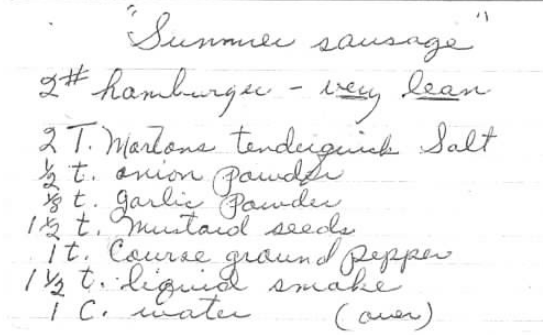 "Summer sausage"
2# hamburger - very lean
2 T. Mortons tenderquick Salt
½ t. onion powder
⅛ t. garlic Powder
1½ t. mustard seeds
1 t. Course ground pepper
1½ t. liquid smoke
1 C. water (over)